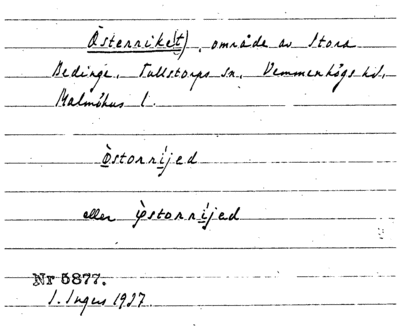 Österriket), område av Stora
Bedinge, Tullstorps sn, Vemmenhögs hd,
Malmöhus l.
östorrijed
eller östorrijed
Nr 5877.
I. Ingers 1927